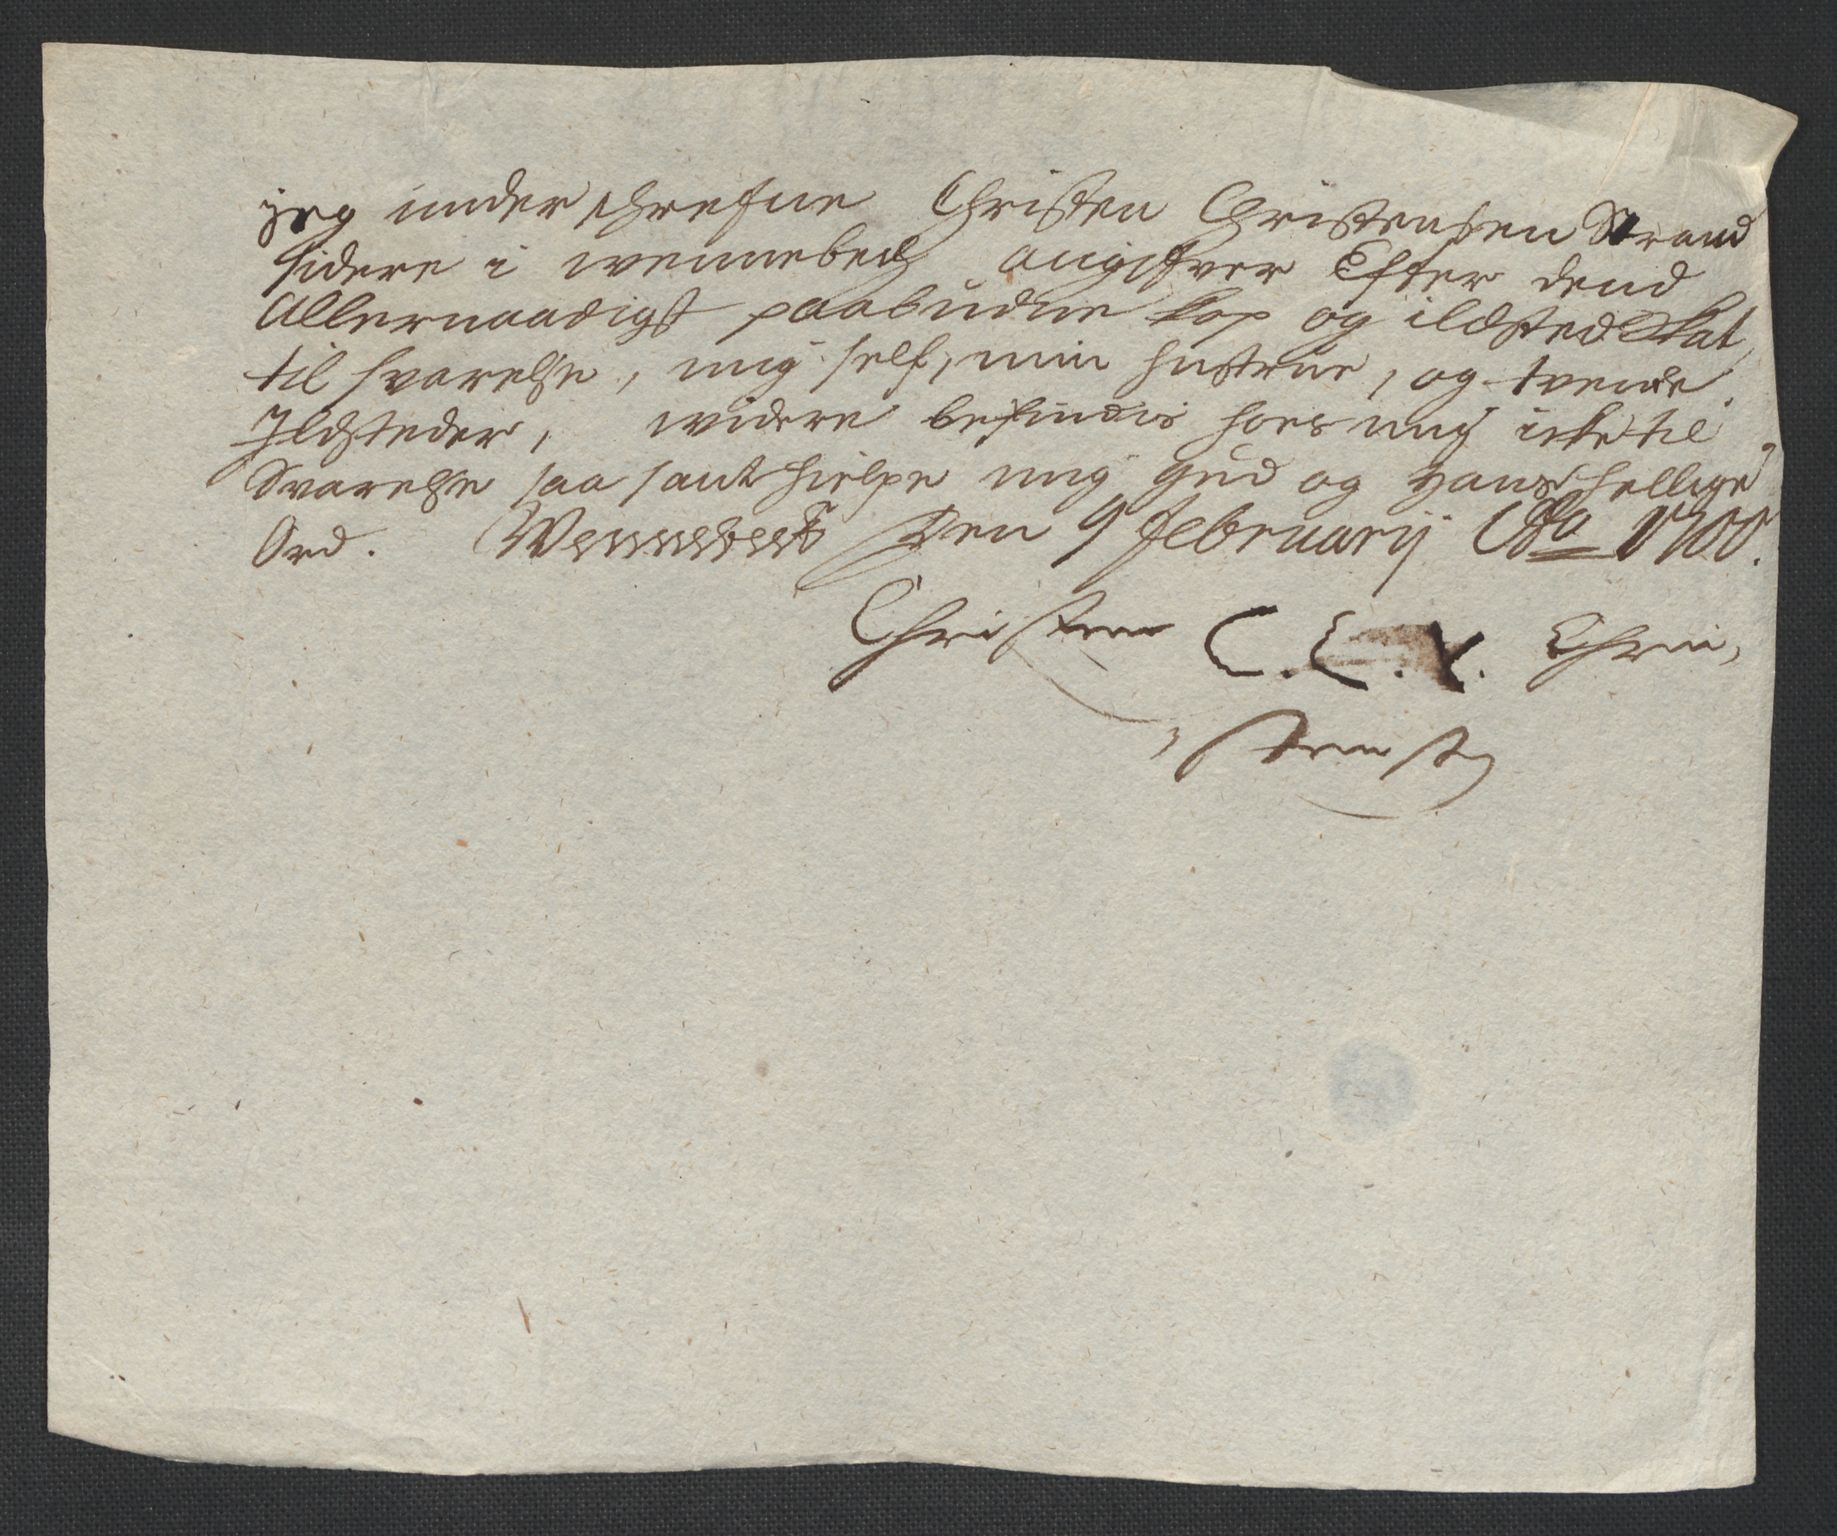 jeg under schrefne Christen Christensen Strand
sidere i wennebech angifver Efter dend
Allernaadigst paabudne kop og ildsted Skat,
til svarelse, mig self, min hustrue, og tvende
Jldsteder, widere befindis hoes mig icke til
Svarelse saa sant hielpe mig gud og hans hellige
Ord. Wennebeck Den 9 Februarij Ao 1700.
Christen C. C. X. Chri,
stensen